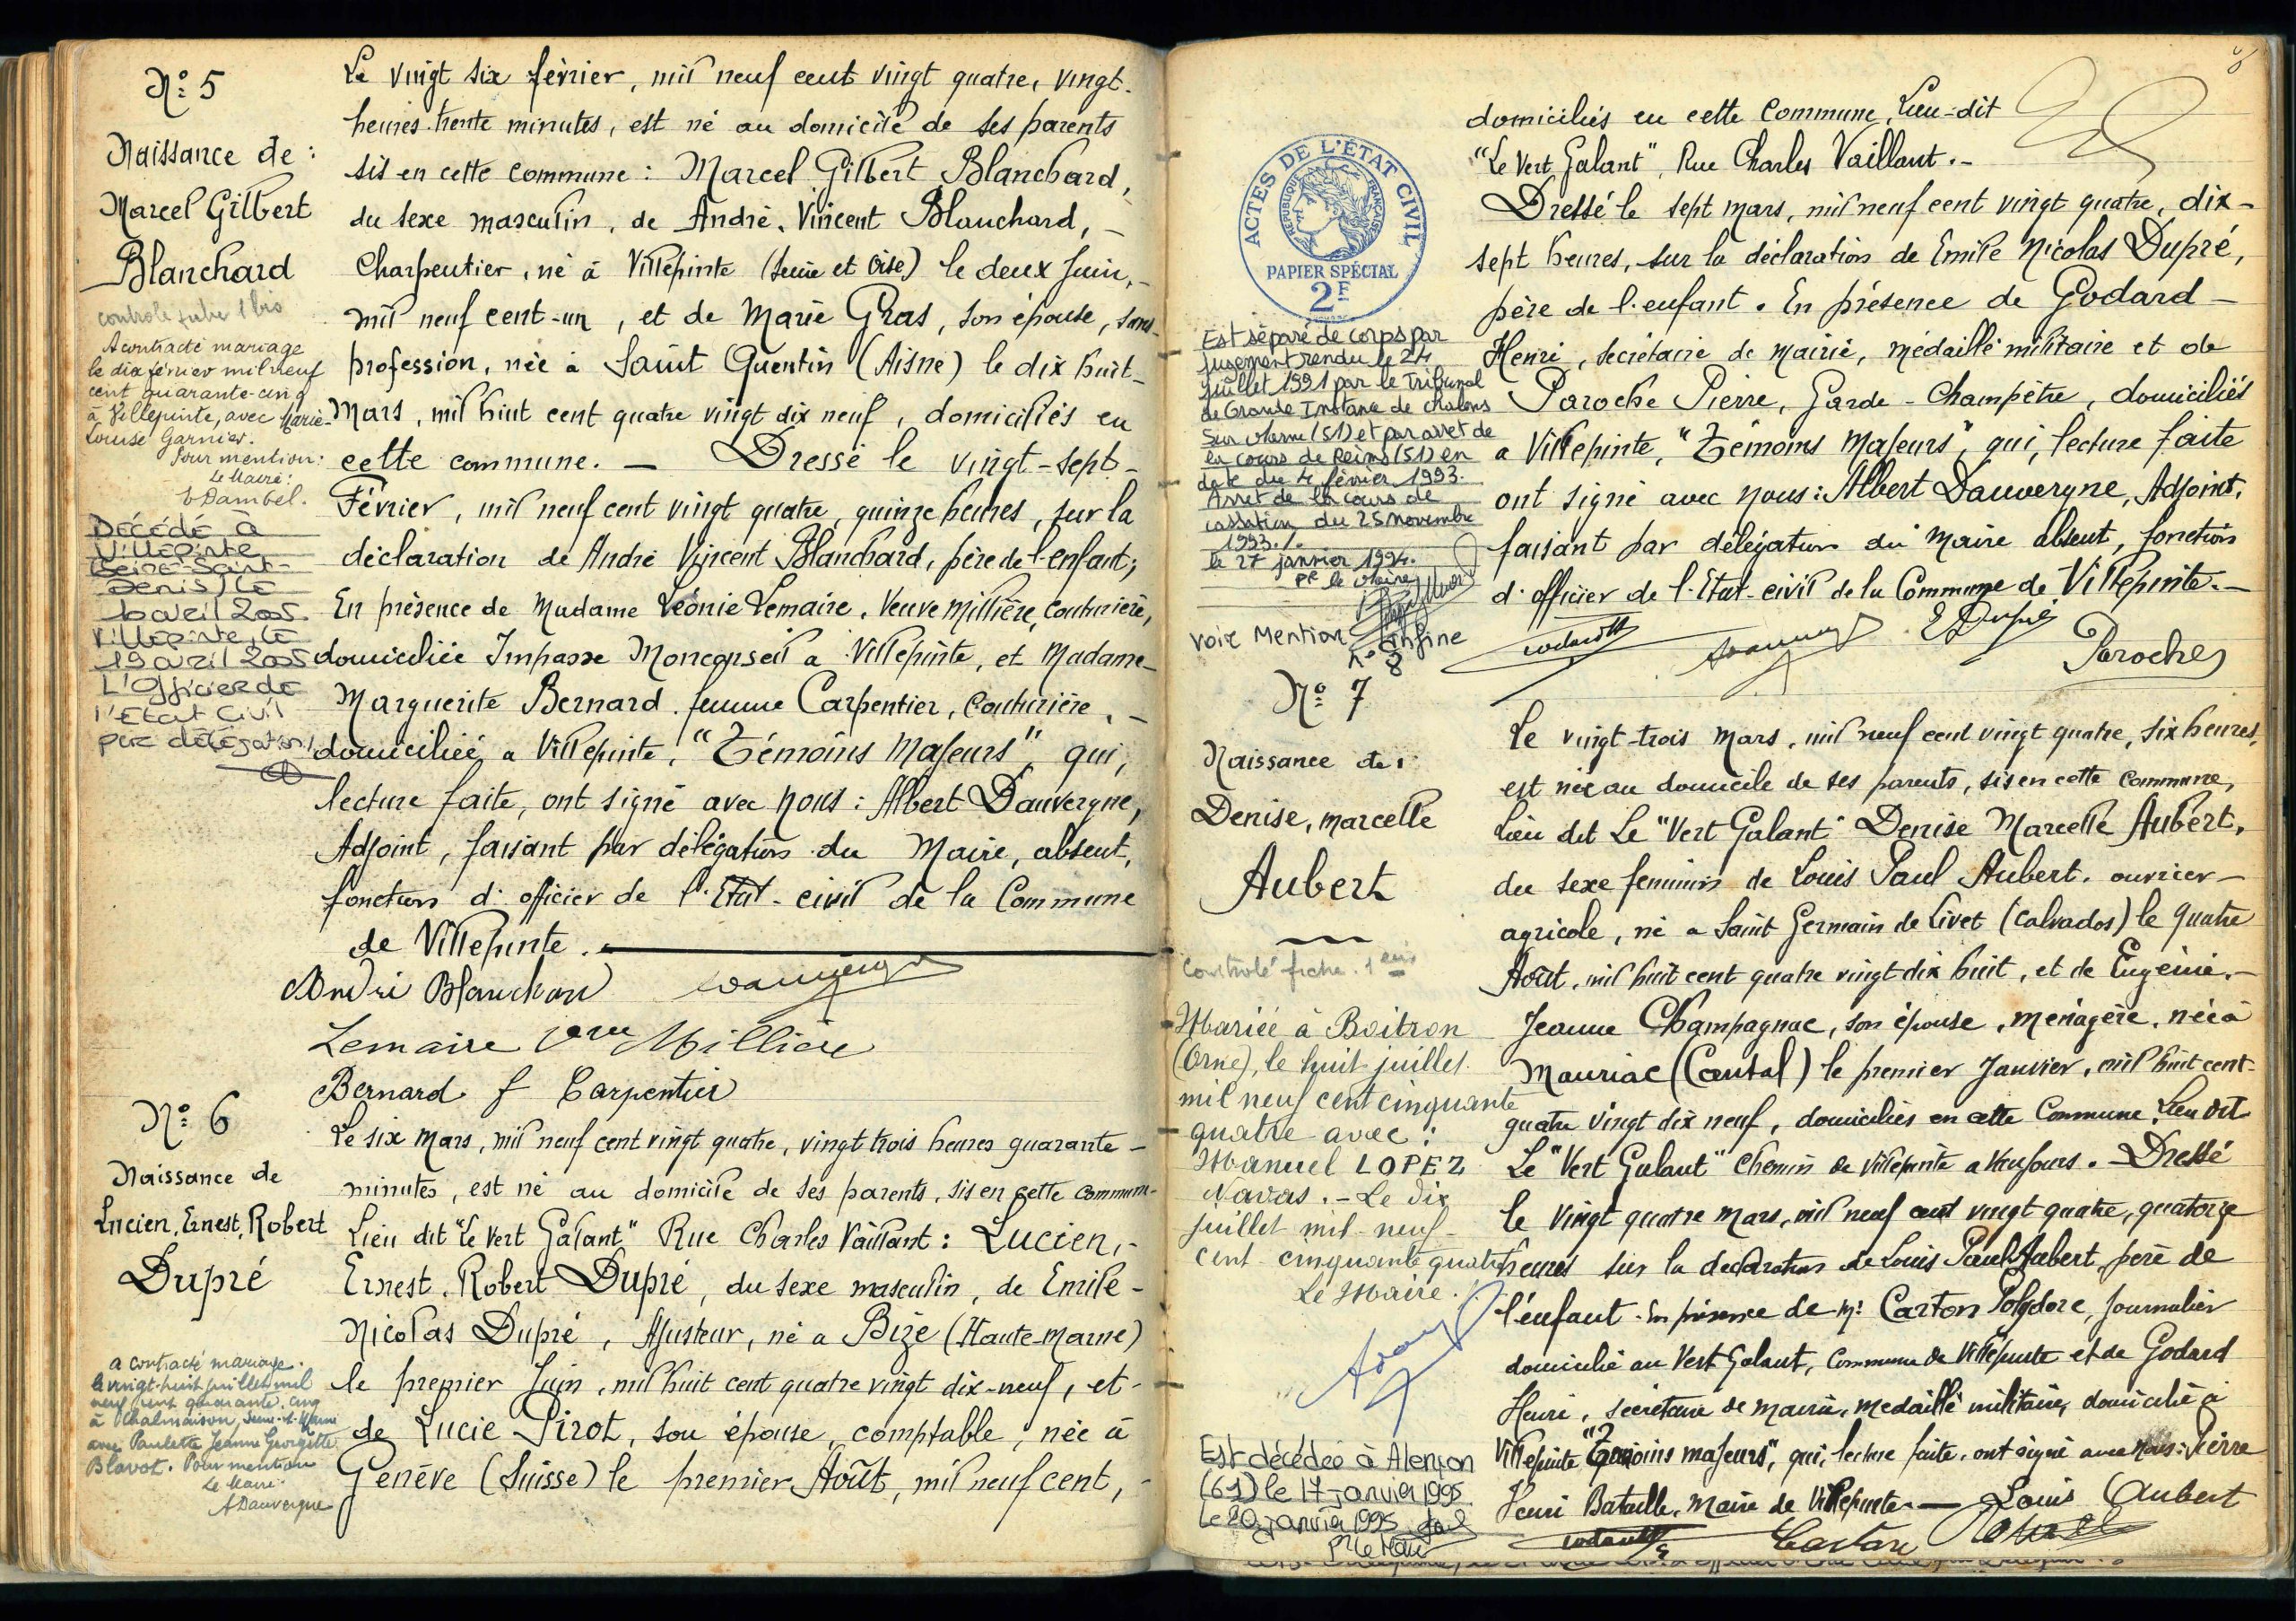 N° 5
Naissance de :
Marcel Gilbert
Blanchard
A contracté mariage
le dix février mil neuf
cent quarante-cinq
à Villepinte, avec Marie-
Louise Garnier.
Pour mention :
Le Maire :
Décédé à
Villepinte
(Seine-Saint-
Denis) le
avril 2005
Villepinte, le
19 avril 2005
L'Officier de
l'Etat Civil
par délégation
Le vingt six février, mil neuf cent vingt quatre, vingt-
heures trente minutes, est né au domicile de ses parents
sis en cette commune : Marcel Gilbert Blanchard,
du sexe masculin, de André, Vincent Blanchard, -
Charpentier, né à Villepinte (Seine et Oise) le deux Juin, -
mil neuf cent-un, et de Marie Gras, son épouse, sans-
profession, née à Saint Quentin (Aisne) le dix huit-
Mars, mil huit cent quatre vingt dix neuf, domiciliés en
cette commune. — Dressé le vingt-sept-
Février, mil neuf cent vingt quatre, quinze heures, sur la
déclaration de André Vincent Blanchard, père de l'enfant;
En présence de Madame Léonie Lemaire, Veuve Millière, couturière,
domiciliée Impasse Monconseil a Villepinte, et Madame-
Marguerite Bernard femme Carpentier, Couturière, -
domiciliée a Villepinte, "Témoins Majeurs", qui,
lecture faite, ont signé avec nous : Albert Dauvergne,
Adjoint, faisant par délégation du Maire, absent,
fonction d'officier de l'Etat-civil de la Commune
de Villepinte.
André Blanchard Dauvergne
Lemaire Vve Millière
Bernard f Carpentier
N° 6
Naissance de
Lucien, Ernest, Robert
Dupré
a contracté mariage
le vingt-huit juillet mil
neuf cent quarante-cinq
à Chalmaison, Seine-et-Marne
avec Paulette Jeanne Georgette
Blavot. Pour mention
Le Maire
ADauvergne
Le six Mars, mil neuf cent vingt quatre, vingt trois heures quarante-
minutes, est né au domicile de ses parents, sis en cette commune-
Lieu dit "Le Vert Galant" Rue Charles Vaillant : Lucien, -
Ernest, Robert Dupré, du sexe masculin, de Emile -
Nicolas Dupré, Ajusteur, né a Bize (Haute-Marne)
le premier Juin, mil huit cent quatre vingt dix-neuf, et -
de Lucie Pirot, son épouse, comptable, née à
Genève (Suisse) le premier Août, mil neuf cent, -
8
ACTES DE L'ÉTAT CIVIL
RÉPUBLIQUE FRANÇAISE
PAPIER SPÉCIAL
2F
Est séparé de corps par
jugement rendu le 24
juillet 1991 par le Tribunal
de Grande Instance de Chalons
Sur Marne (51) et par arret de
la cours de Reims (51) en
date du 4 février 1993.
Arret de la cours de
cassation du 25 novembre
1993./.
le 27 janvier 1994.
Pr le Maire
voir Mention N° 8 infine
domiciliés en cette Commune, Lieu-dit
"Le Vert Galant", Rue Charles Vaillant. -
Dressé le sept mars, mil neuf cent vingt quatre, dix -
sept heures, sur la déclaration de Emile Nicolas Dupré,
père de l'enfant. En présence de Godard -
Henri, secrétaire de mairie, médaillé militaire et de
Paroche Pierre, Garde-Champêtre, domiciliés
a Villepinte, "Témoins Majeurs", qui, lecture faite
ont signé avec nous : Albert Dauvergne, Adjoint,
faisant par délégation du Maire absent, fonction
d'officier de l'Etat-civil de la Commune de Villepinte. -
EDupré
Paroche
N° 7
Naissance de :
Denise, Marcelle
Aubert
Controlé fiche 1
Mariée à Boitron
(Orne), le huit juillet
mil neuf cent cinquante
quatre avec :
Manuel LOPEZ
Navas. - Le dix
juillet mil neuf
cent cinquante quatre
Le Maire.
Est décédée à Alençon
(61) le 17 janvier 1995
Le 20 janvier 1995
Pr Le Maire
Le vingt-trois Mars, mil neuf cent vingt quatre, six heures,
est née au domicile de ses parents, sis en cette commune,
Lieu dit Le "Vert Galant" Denise Marcelle Aubert,
du sexe feminin de Louis Paul Aubert, ouvrier -
agricole, né a Saint Germain de Livet (Calvados) le quatre
Août, mil huit cent quatre vingt dix huit, et de Eugénie -
Jeanne Champagnac, son épouse, ménagère, née à
Mauriac (Cantal) le premier Janvier, mil huit cent-
quatre vingt dix neuf, domiciliés en cette Commune, Lieu dit
Le "Vert Galant" Chemin de Villepinte a Vaujours. - Dressé
le vingt quatre Mars, mil neuf cent vingt quatre, quatorze
heures sur la declaration de Louis Paul Aubert, père de
l'enfant. En présence de Mr Carton Polydore, Journalier
domicilié au Vert Galant, Commune de Villepinte et de Godard
Henri, secrétaire de mairie, medaillé militaire, domicilié a
Villepinte "Temoins majeurs", qui, lecture faite, ont signé avec nous : Pierre
Henri Bataille, Maire de Villepinte. — Louis Aubert
Carton